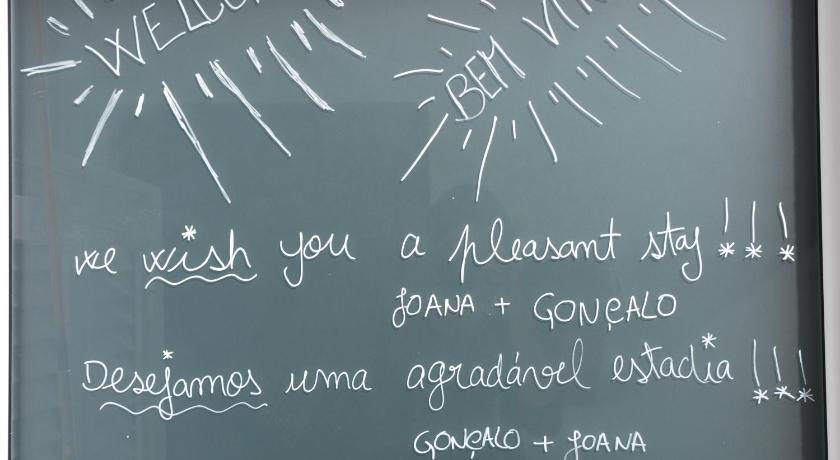 WELCO
BEM VIN
we wish you a pleasant stay !!!
JOANA + GONÇALO
Desejamos uma agradável estadia !!!
GONÇALO + JOANA